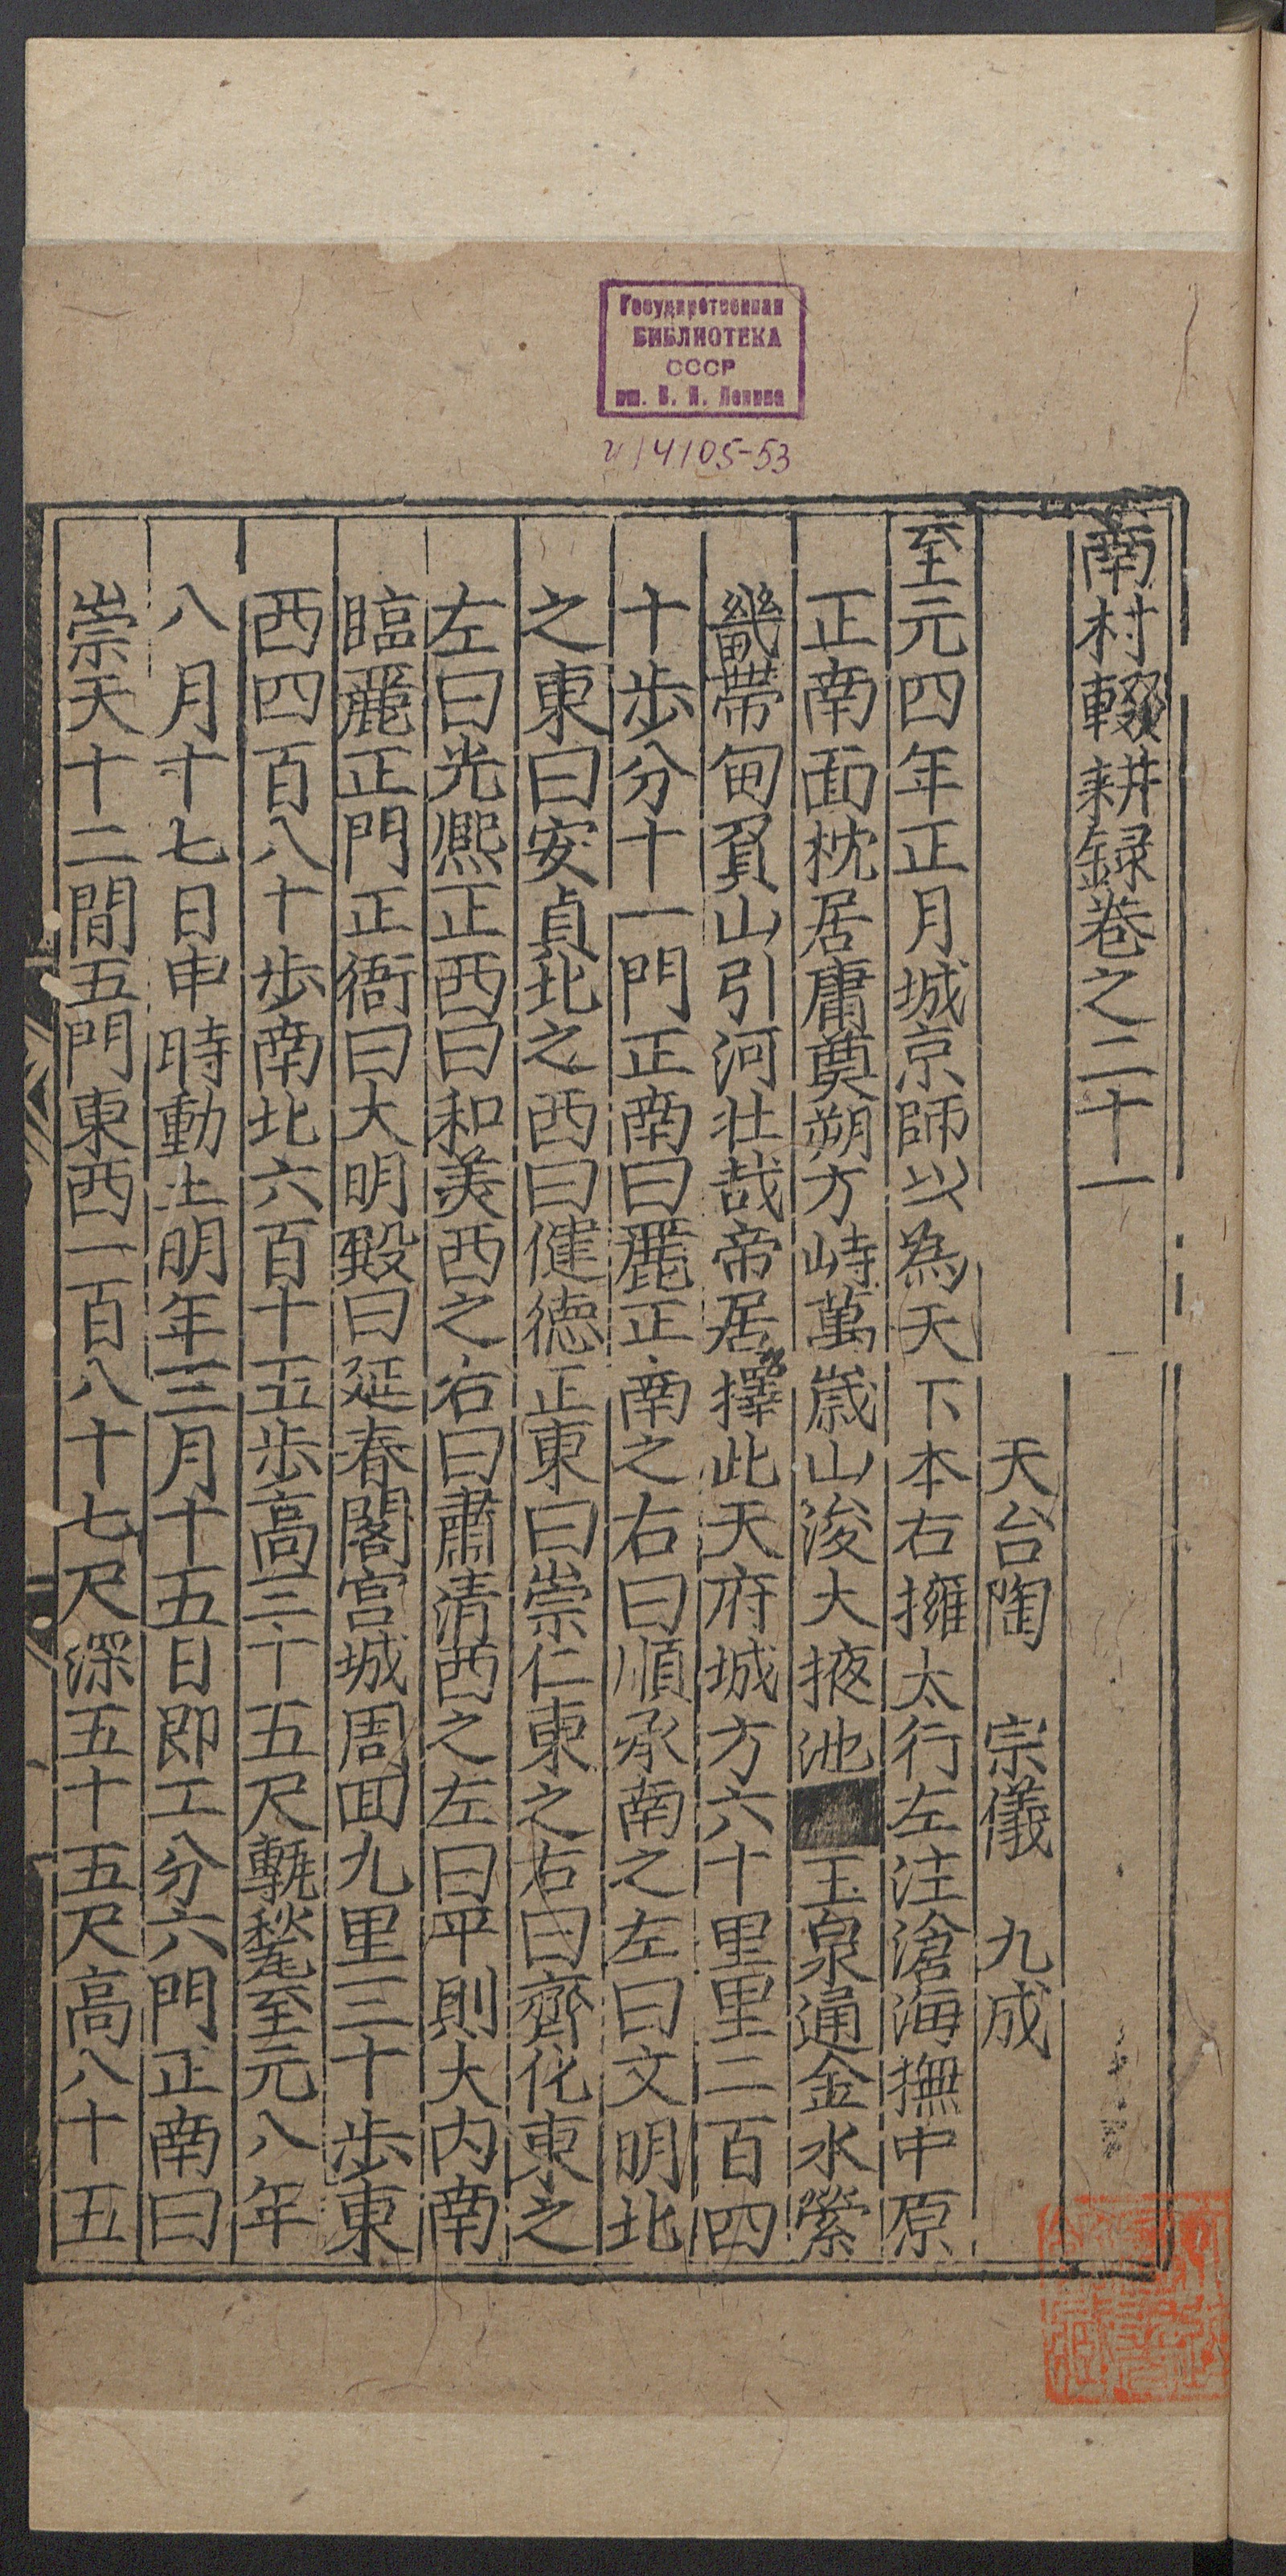 Государственная
БИБЛИОТЕКА
СССР
им. В. И. Ленина
И 14105-53
南村輟耕録卷之二十一
天台陶 宗儀 九成
至元四年正月城京師以為天下本右擁太行左注滄海撫中原
正南面枕居庸奠朔方峙萬歳山浚大掖池玉泉通金水縈
畿帶甸負山引河壯哉帝居擇此天府城方六十里里二百四
十歩分十一門正南曰麗正南之右曰順承南之左曰文明北
之東曰安貞北之西曰健德正東曰崇仁東之右曰齊化東之
左曰光熈正西曰和義西之右曰肅清西之左曰平則大内南
臨麗正門正衙曰大明殿曰延春閣宮城周囬九里三十歩東
西四百八十歩南北六百十五歩高三十五尺甎甃至元八年
八月十七日申時動土明年三月十五日即工分六門正南曰
崇天十二間五門東西一百八十七尺深五十五尺高八十五